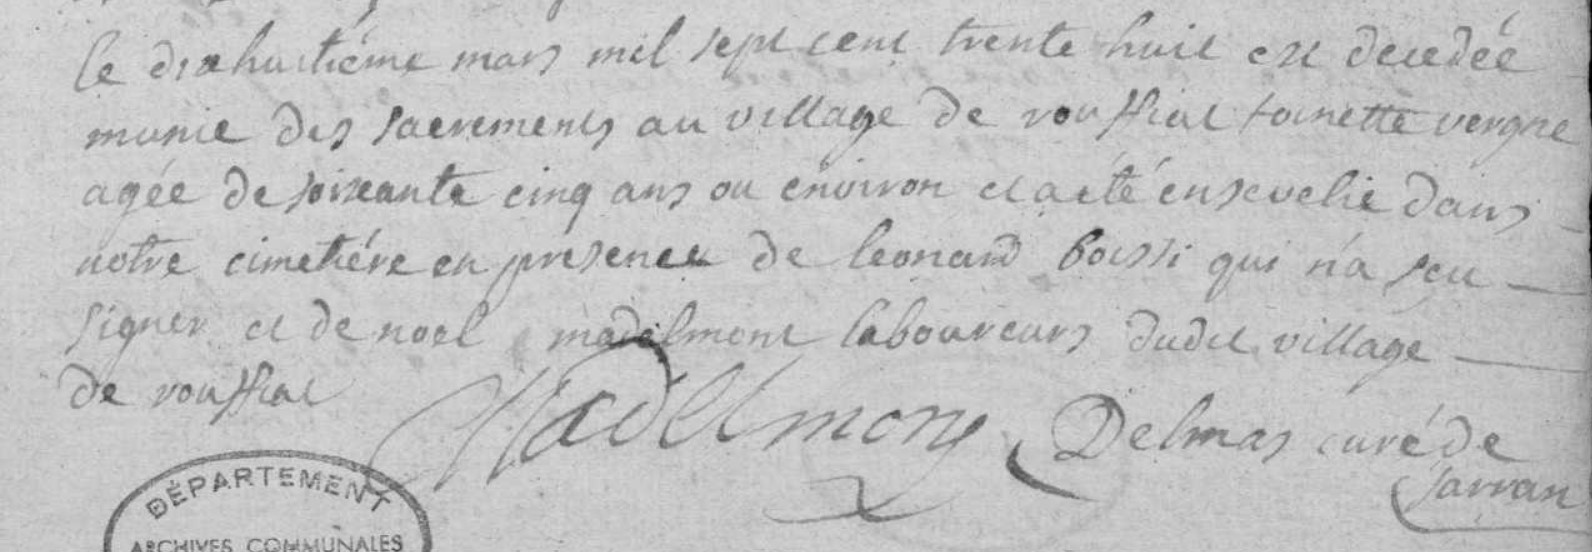 le dixhuitiéme mars mil sept cent trente huit est decedée
munie des sacrements au village de rouffiat toinette vergne
agée de soixante cinq ans ou environ et a eté ensevelie dans
notre cimetiére en presence de leonard boissi qui n'a sceu
signer et de noel madelmont laboureurs dudit village
de rouffiat
Madelmont Delmas curé de
Sarran
DÉPARTEMENT
ARCHIVES COMMUNALES